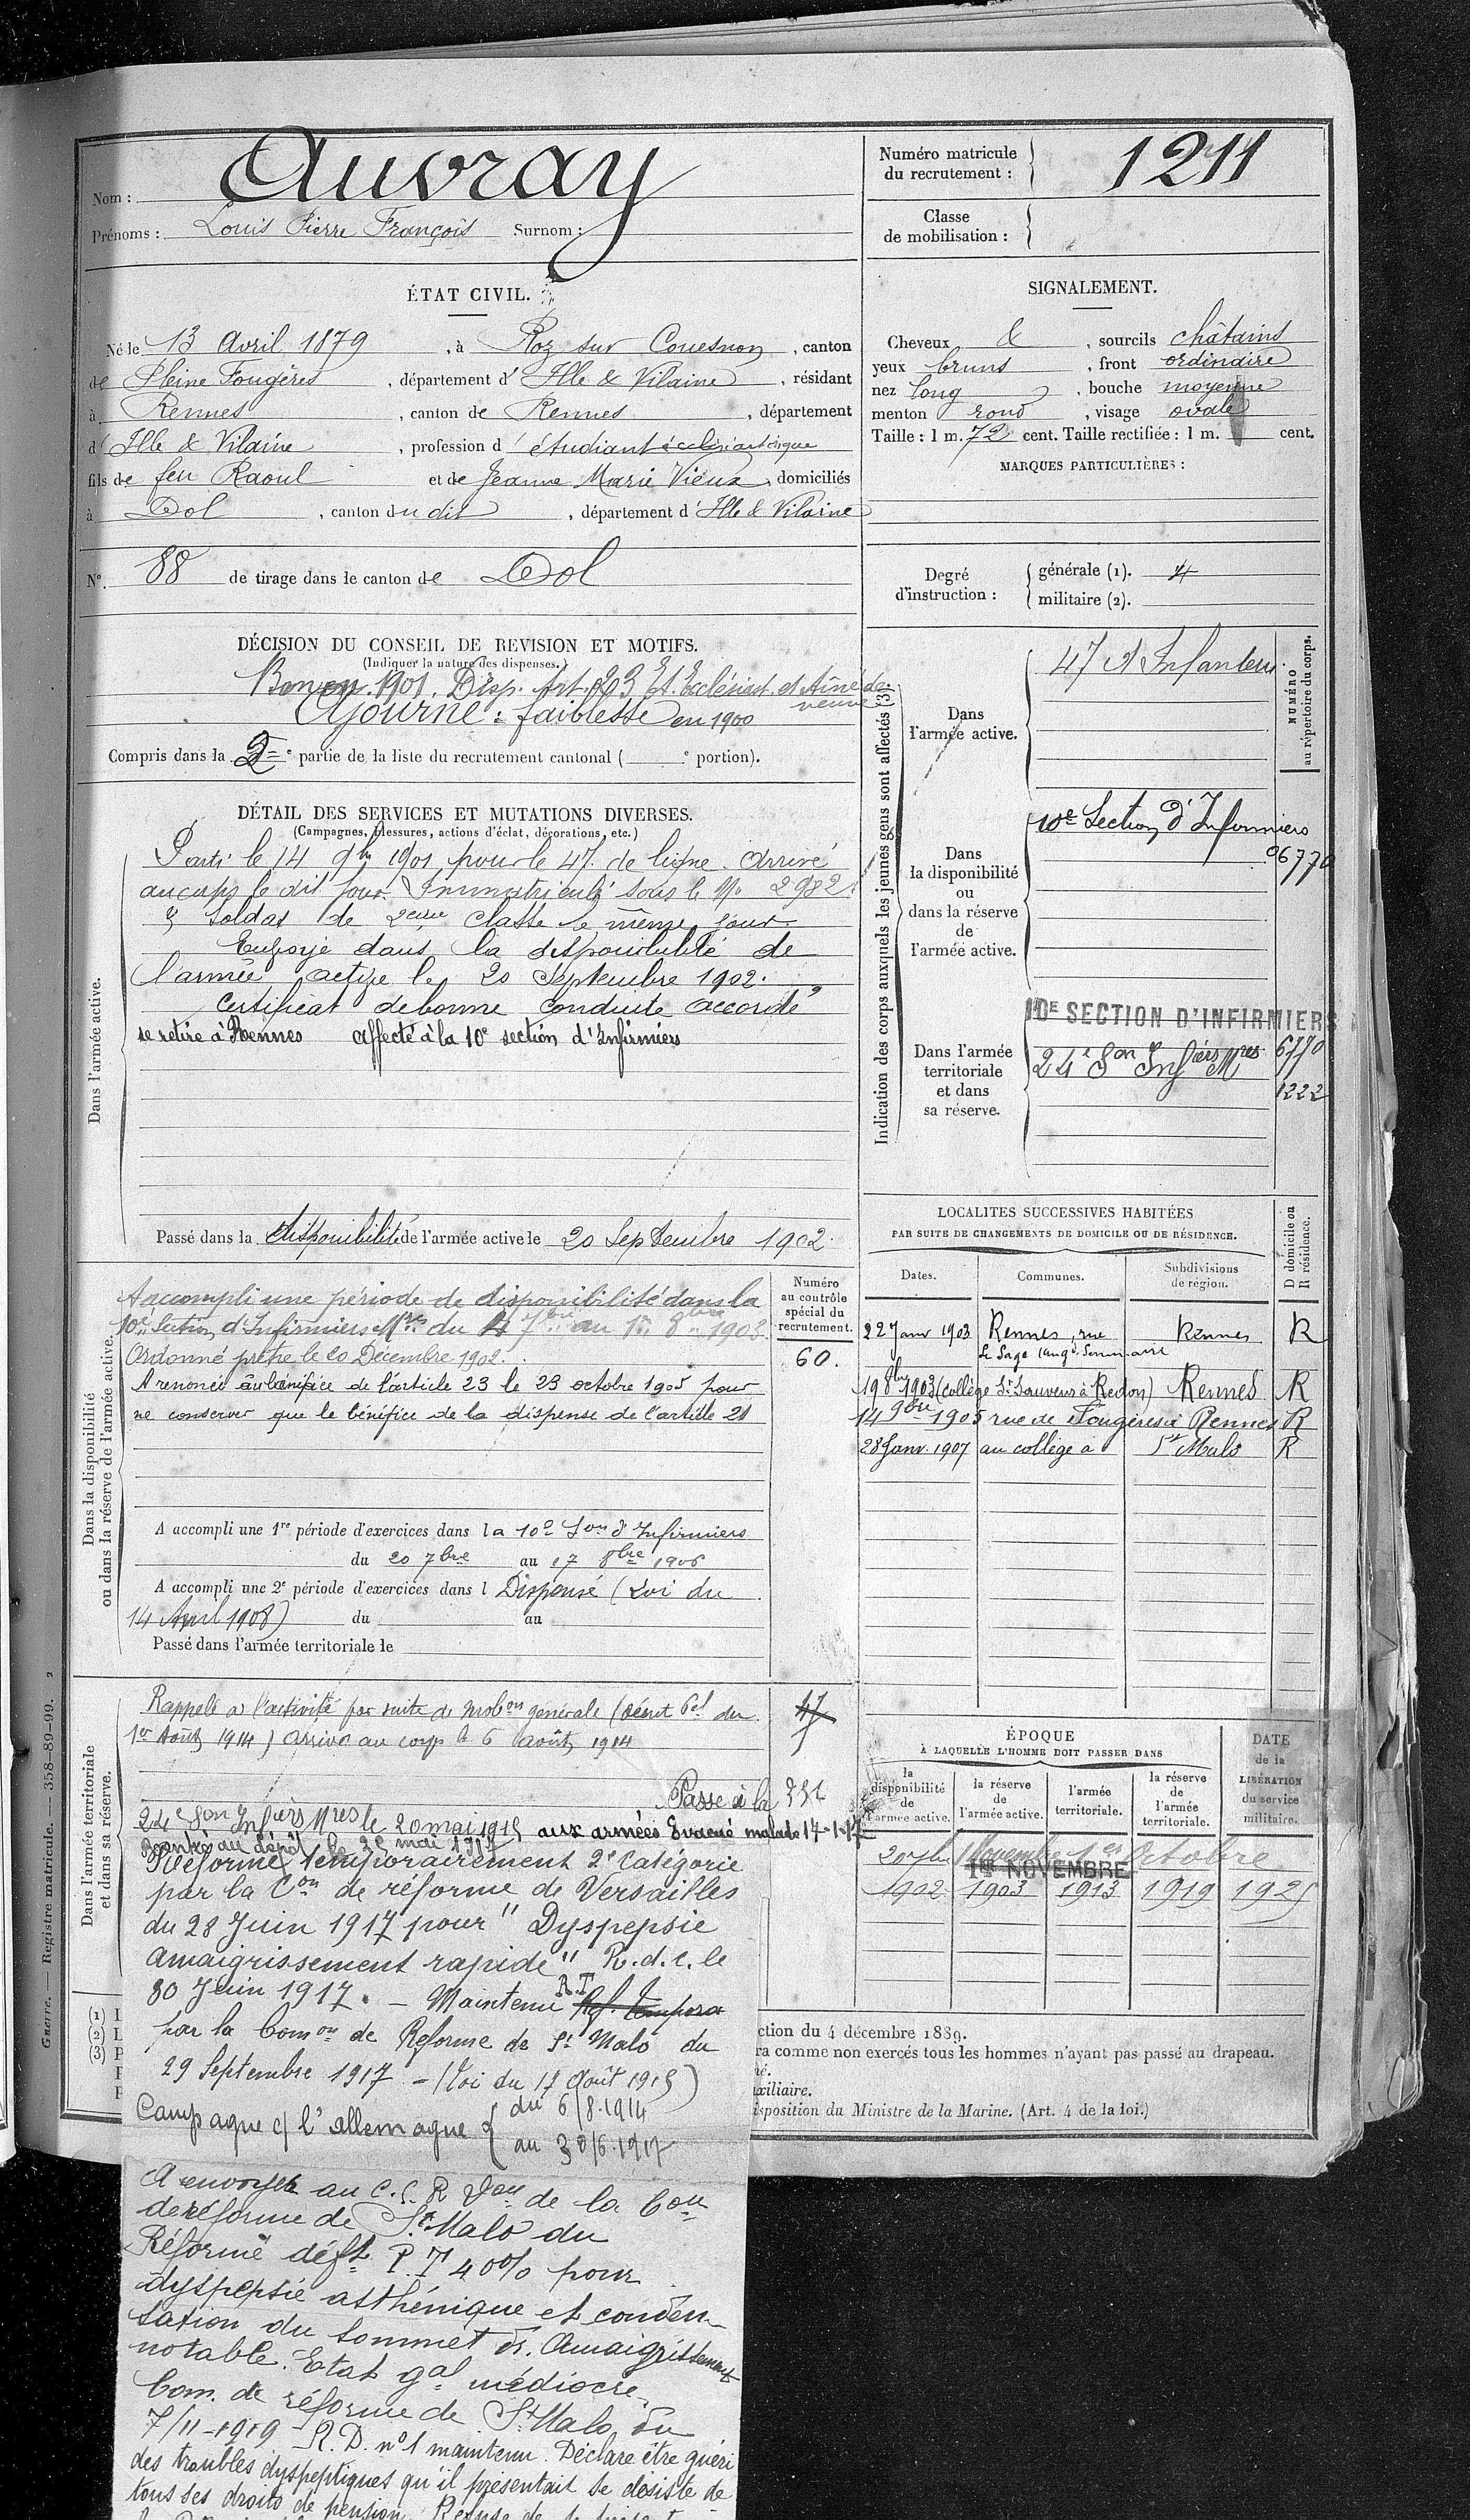 Nom : Auvray
Prénoms : Louis Pierre François Surnom :
Numéro matricule du recrutement : 1211
Classe de mobilisation :
ÉTAT CIVIL.
Né le 13 Avril 1879, à Roz sur Couesnon, canton
de Pleine Fougères, département d'Ille & Vilaine, résidant
à Rennes, canton de Rennes, département
d'Ille & Vilaine, profession d'étudiant écclésiastique
fils de feu Raoul et de Jeanne Marie Vieux, domiciliés
à Dol, canton du dit, département d'Ille & Vilaine
N° 88 de tirage dans le canton de Dol
SIGNALEMENT.
Cheveux &, sourcils châtains
yeux bruns, front ordinaire
nez long, bouche moyenne
menton rond, visage ovale
Taille : 1 m. 72 cent. Taille rectifiée : 1 m. cent.
MARQUES PARTICULIÈRES :
Degré d'instruction :
générale (1). 4
militaire (2).
DÉCISION DU CONSEIL DE REVISION ET MOTIFS.
(Indiquer la nature des dispenses.)
Bon en 1901. Disp. Art. 23 Et. Ecclésiast. et Aîné de
veuve
Ajourné : faiblesse en 1900
Compris dans la 2e partie de la liste du recrutement cantonal ( e portion).
DÉTAIL DES SERVICES ET MUTATIONS DIVERSES.
(Campagnes, blessures, actions d'éclat, décorations, etc.)
Dans l'armée active.
Parti le 14 9bre 1901 pour le 47. de ligne. Arrivé
au corps le dit jour. Immatriculé sous le No 2982
& soldat de 2eme classe le même jour.
Envoyé dans la disponibilité de
l'armée active le 20 Septembre 1902.
Certificat de bonne conduite accordé
se retire à Rennes affecté à la 10e section d'Infirmiers
Passé dans la disponibilité de l'armée active le 20 Septembre 1902.
Indication des corps auxquels les jeunes gens sont affectés (3)
NUMÉRO au répertoire du corps.
Dans l'armée active.
47 d'Infanterie
Dans la disponibilité ou dans la réserve de l'armée active.
10e Section d'Infirmiers
06770
Dans l'armée territoriale et dans sa réserve.
10E SECTION D'INFIRMIERS
6770
24e Son Infiers Mres
1222
LOCALITES SUCCESSIVES HABITÉES
PAR SUITE DE CHANGEMENTS DE DOMICILE OU DE RÉSIDENCE.
Dates. Communes. Subdivisions de région. D domicile ou R résidence.
22 Janv 1903 Rennes, rue Rennes R
Le Sage
19 8bre 1903 (collège St Sauveur à Redon) Rennes R
14 9bre 1905 rue de Fougères à Rennes R
28 Janv. 1907 au collège à St Malo R
Dans la disponibilité ou dans la réserve de l'armée active.
Numéro au contrôle spécial du recrutement.
60.
A accompli une période de disponibilité dans la
10e Section d'Infirmiers Mres du 4 7bre au 1er 8bre 1903.
Ordonné prêtre le 20 Décembre 1902.
A renoncé au bénéfice de l'article 23 le 23 octobre 1905 pour
ne conserver que le bénéfice de la dispense de l'article 21
A accompli une 1re période d'exercices dans la 10e Son d'Infirmiers
du 20 7bre au 17 8bre 1906
A accompli une 2e période d'exercices dans l Dispensé (Loi du
14 Avril 1908) du au
Passé dans l'armée territoriale le
Dans l'armée territoriale et dans sa réserve.
Rappelé à l'activité par suite de mobon générale (décret Pel du
1er Août 1914) arrivé au corps le 6 août 1914
47
Passé à la
24e Son Infiers Mres le 20 mai 1915 aux armées Evacué malade 17-1-17
Rentré au dépôt le 25 mai 1917
Réformé temporairement 2e Catégorie
par la Con de réforme de Versailles
du 28 Juin 1917 pour "Dyspepsie
amaigrissement rapide" R.d.c. le
30 Juin 1917. - Maintenu Réf. tempora R.T
par la Comon de Réforme de St Malo du
29 Septembre 1917 - (Loi du 17 Août 1915)
Campagne c/ l'allemagne { du 6/8.1914
au 30/6.1917
ÉPOQUE
À LAQUELLE L'HOMME DOIT PASSER DANS
DATE de la LIBÉRATION du service militaire.
la disponibilité de l'armée active.
la réserve de l'armée active.
l'armée territoriale.
la réserve de l'armée territoriale.
20 7bre 1 Novembre 1er Octobre
1ER NOVEMBRE
1902 1903 1913 1919 1925
ction du 4 décembre 1889.
ra comme non exercés tous les hommes n'ayant pas passé au drapeau.
né.
uxiliaire.
isposition du Ministre de la Marine. (Art. 4 de la loi.)
(1) L
(2) L
(3) P
Guerre. — Registre matricule. — 358-89-99. 2
A envoyer au C.S.R de la Con
de réforme de St Malo du
Réformé déft P.T 40% pour
dyspepsie asthénique et conden-
sation du sommet dr. Amaigrissement
notable. Etat gal médiocre.
Com. de réforme de St Malo du
7/11-1919 R.D. n°1 maintenu. Déclare être guéri
des troubles dyspeptiques qu'il présentait se désiste de
tous ses droits de pension. Refuse de